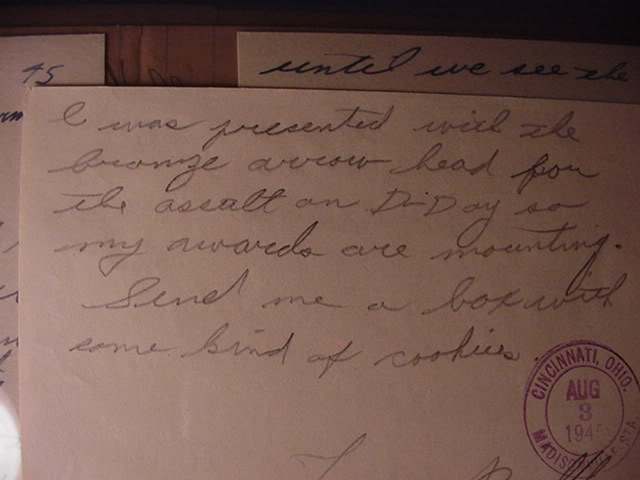 45
until we see the
I was presented with the
bronze arrow head for
the assalt on D-Day so
my awards are mounting.
Send me a box with
some kind of cookies
CINCINNATI, OHIO.
AUG
3
194
STA.